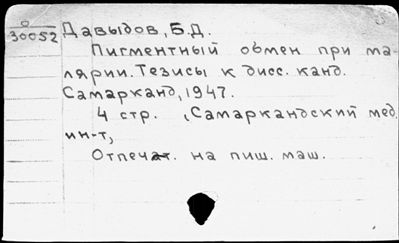 О
30052 Давыдов, Б.Д.
Пигментный обмен при ма-
лярии. Тезисы к дисс. канд.
Самарканд, 1947.
4 стр. (Самаркандский мед.
ин-т,
Отпечат. на пиш. маш.